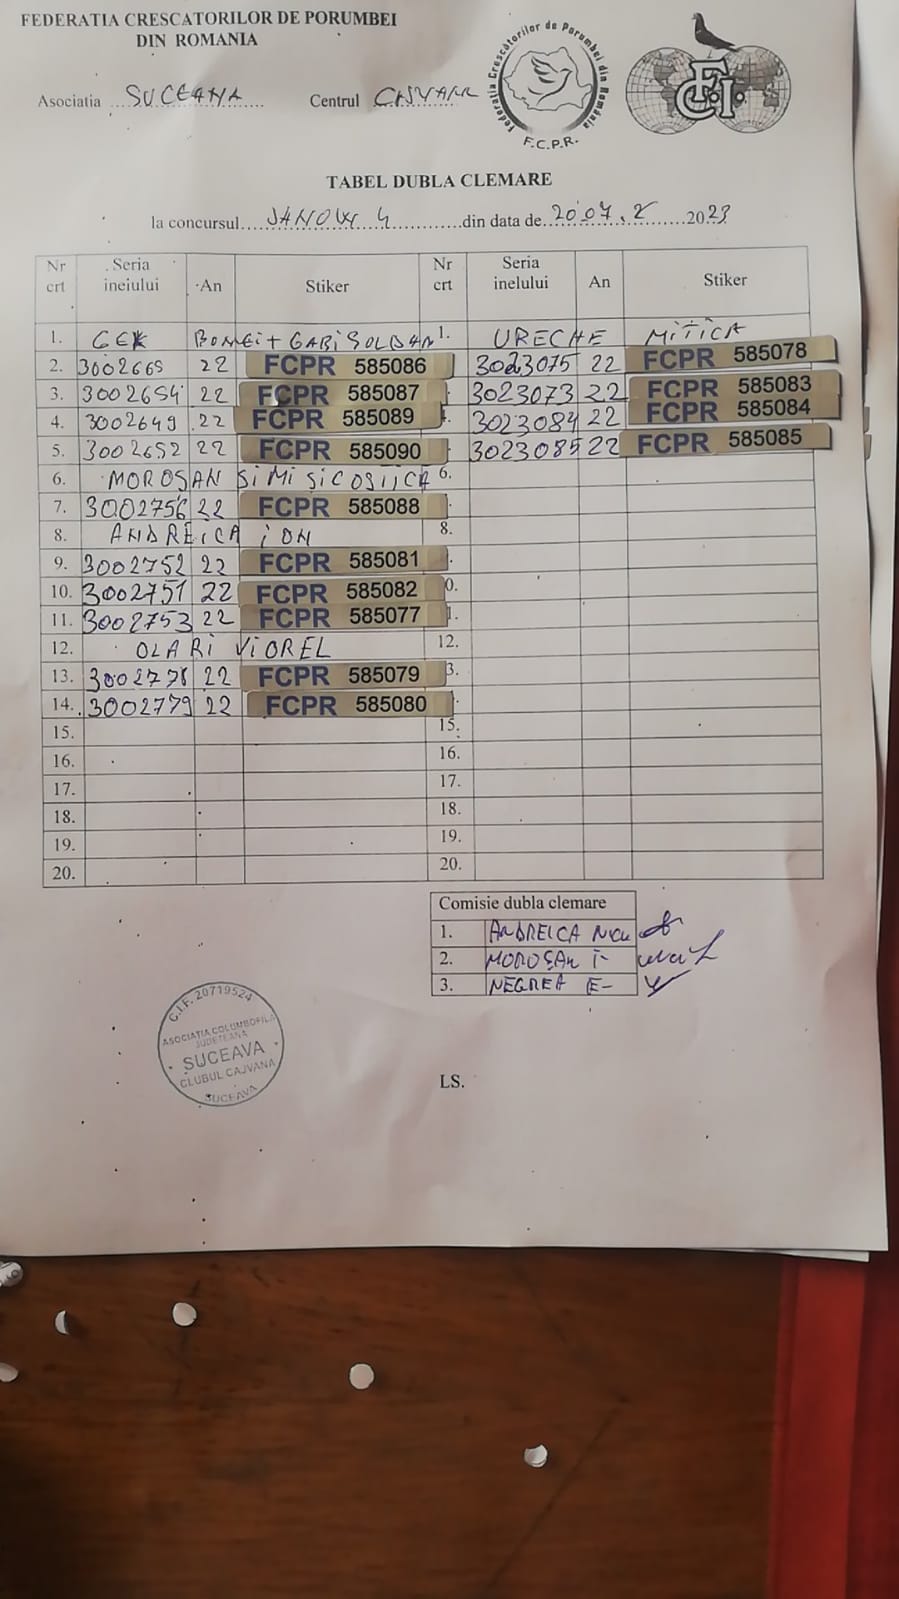 FEDERATIA CRESCATORILOR DE PORUMBEI
DIN ROMANIA
Asociatia SUCEAVA Centrul
Federatia Crescătorilor de Porumbei din România
F.C.P.R.
F.C.I.
TABEL DUBLA CLEMARE
la concursul JANOW 4 din data de 20.07. 2023
Nr crt Seria ineiului An Stiker Nr crt Seria inelului An Stiker
1. GEK + GABI SOLDAN 1. URECHE MITICA
2. 3002665 22 FCPR 585086 3023075 22 FCPR 585078
3. 3002654 22 FCPR 585087 3023073 22 FCPR 585083
4. 3002649 22 FCPR 585089 3023084 22 FCPR 585084
5. 3002652 22 FCPR 585090 3023085 22 FCPR 585085
6. MOROȘAN SIMI ȘI COSTICĂ 6.
7. 3002756 22 FCPR 585088
8. ANDREICA ION 8.
9. 3002752 22 FCPR 585081
10. 3002751 22 FCPR 585082 0.
11. 3002753 22 FCPR 585077 1.
12. OLARI VIOREL 12.
13. 3002778 22 FCPR 585079 3.
14. 3002779 22 FCPR 585080
15. 15.
16. 16.
17. 17.
18. 18.
19. 19.
20. 20.
Comisie dubla clemare
1. ANDREICA
2. MOROȘAN
3. NEGREA E-
C.I.F. 20719524
ASOCIAȚIA COLUMBOFILĂ
JUDEȚEANĂ
SUCEAVA
CLUBUL CAJVANA
SUCEAVA
LS.